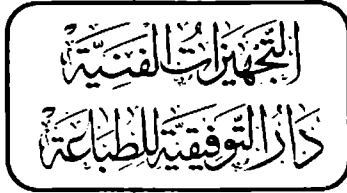 التَّجْهِيزَاتُ الفَنِيَّة
دَارُ التَّوفِيقِيَّة لِلطِبَاعَة